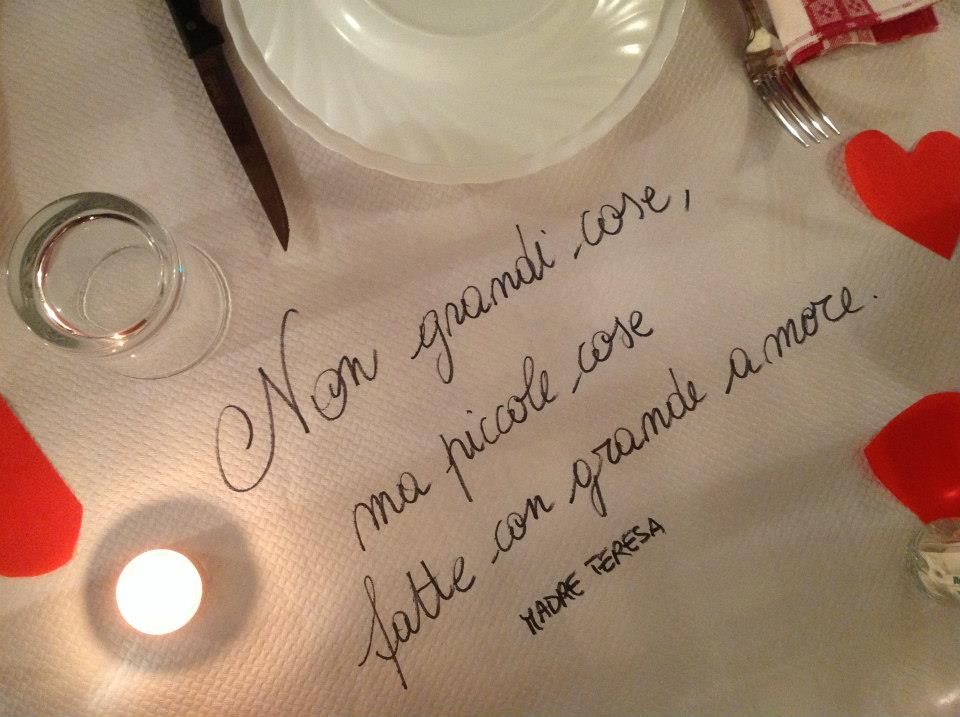 Non grandi cose,
ma piccole cose
fatte con grande amore.
MADRE TERESA